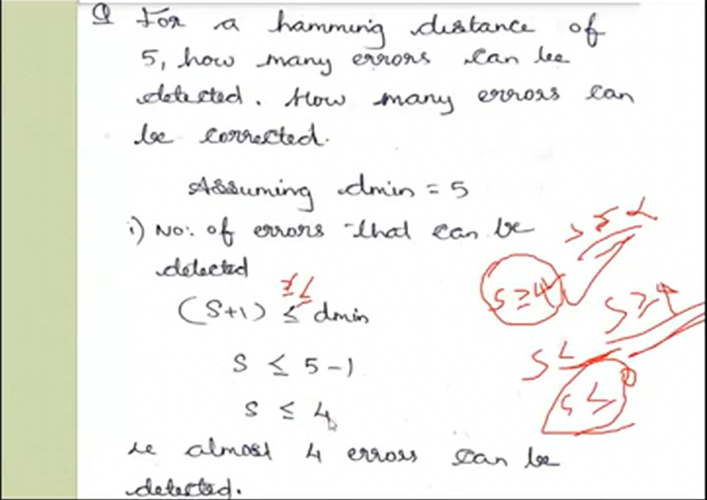 Q For a hamming distance of
5, how many errors can be
detected. How many errors can
be corrected.
Assuming dmin = 5
i) No: of errors that can be
detected
(S+1) ≤ dmin
S ≤ 5-1
S ≤ 4
ie almost 4 errors can be
detected.
S ≥ 4
S ≥ 4
S ≤